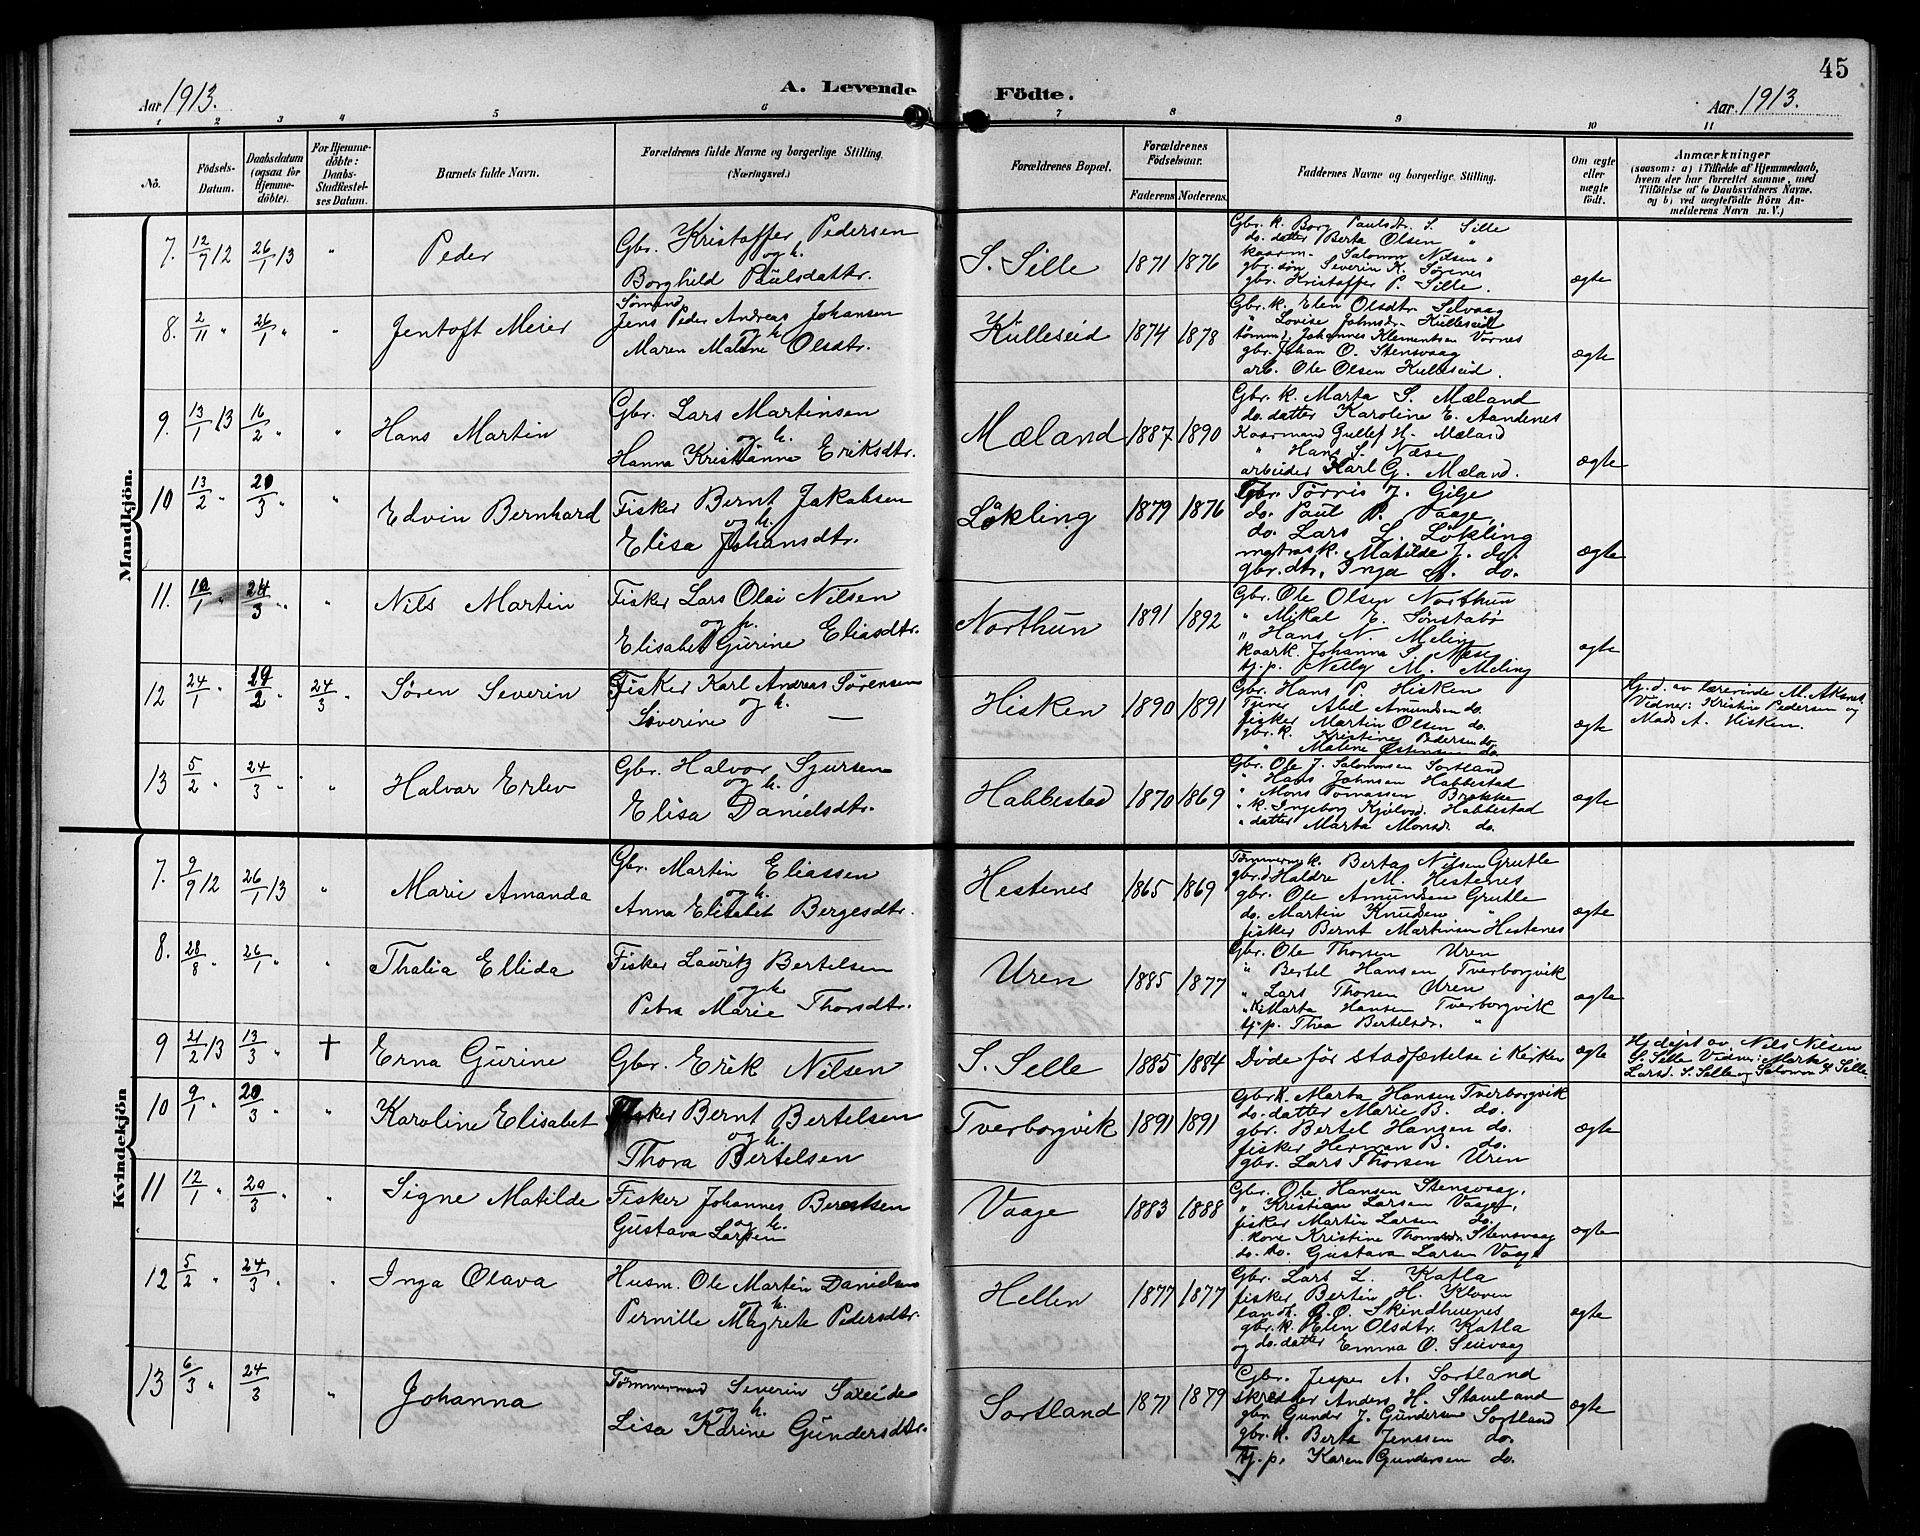 45
Aar 1913.
A. Levende Födte.
Aar 1913.
1 2 3 4 5 6 7 8 9 10 11
No.
Födsels-Datum.
Daabsdatum (ogsaa for Hjemmedöbte).
For Hjemmedöbte: Daabs-Stadfæstelses Datum.
Barnets fulde Navn.
Forældrenes fulde Navne og borgerlige Stilling.
(Næringsvei.)
Forældrenes Bopæl.
Forældrenes Födselsaar.
Faderens Moderens.
Faddernes Navne og borgerlige Stilling.
Om ægte eller uægte födt.
Anmærkninger
(saasom: a) i Tilfælde af Hjemmedaab, hvem der har forrettet samme, med Tilföielse af to Daabsvidners Navne. og b) ved uægtefödte Börn Anmelderens Navn m. V.)
Mandkjön.
7. 12/9 12 26/1 13 " Peder
Gbr. Kristoffer Pedersen
og h.
Borghild Paulsdattr.
S. Sille 1871 1876
Gbr. k. Borg Paulsdr. S. Sille
do. datter Berta Olsen "
kaarm. Salomon Nilsen "
gbr. søn Severin K. Sørenes
gbr. Kristoffer P. Sille.
ægte
8. 2/11 " 26/1 " " Jentoft Meier
Sømand
Jens Peder Andreas Johansen
og h.
Maren Malene Olsdtr.
Kulleseid 1874 1878
Gbr. k. Elen Olsdtr. Selvaag
" Lovise Johnsdr. Kulleseid
tømm. Johannes Klementsen Vornes
gbr. Johan O. Stensvaag
arb. Ole Olsen Kulleseid.
ægte
9. 13/1 13 16/2 " " Hans Martin
Gbr. Lars Martinsen
og h.
Hanna Kristianne Eriksdtr.
Mæland 1887 1890
Gbr. k. Marta S. Mæland
do. datter Karoline E. Aandenes
Kaarmand Gullef H. Mæland
" Hans S. Næse
arbeider Karl G. Mæland.
ægte
10 13/2 " 20/3 " " Edvin Bernhard
Fisker Bernt Jakobsen
og h.
Elisa Johansdtr.
Løkling 1879 1876
Gbr. Tørris J. Gilje
do. Paul P. Vaage,
do. Lars L. Løkling
matrask. Matilde J. do.
gbr. dtr. Inga A. do.
ægte
11. 10/1 " 24/3 " " Nils Martin
Fisker Lars Olai Nilsen
og h.
Elisabet Gurine Eliasdtr.
Northun 1891 1892
Gbr. Ole Olsen Northun
" Mikal E. Sønstabø
" Hans N. Meling
kaark. Johanna S. Næse
tj. p. Nelly M. Meling
ægte
12 24/1 19/2 " 24/3 " Søren Severin
Fisker Karl Andreas Sørensen
og h.
Severine —
Hisken 1890 1891
Gbr. Hans P. Hisken
Tjener Abel Amundsen do.
fisker Martin Olsen do.
gbr. k. Kristine Pedersen do.
" Malene Østensen do.
ægte
Hj. d. av lærerinde M. Aksnes
Vidner: Kristin Pedersen og
Mads A. Hisken.
13 5/2 " 24/3 " " Halvar Erlev
Gbr. Halvor Sjursen
og h.
Elisa Danielsdtr.
Habbestad 1870 1869
Gbr. Ole J. Salomonsen Sortland
" Hans Johnsen Habbestad
" Mons Tomassen Brekke
" k. Ingeborg Kjølvsd. Habbestad
" datter Marta Monsd. do.
ægte
Kvindekjön
7. 9/9 12 26/1 13 " Marie Amanda
Gbr. Martin Eliassen
og h.
Anna Elisabet Bergesdtr.
Hestenes 1865 1869
Tømmerm. k. Berta Nilsen Grutle
gbr. d. Haldre M. Hestenes
gbr. Ole Amundsen Grutle
do. Martin Knudsen "
fisker Bernt Martinsen Hestenes
ægte
8. 28/8 " 26/1 " " Thalia Ellida
Fisker Lauritz Bertelsen
og h.
Petra Marie Thorsdtr.
Uren 1885 1877
Gbr. Ole Thorsen Uren
" Bertel Hansen Tverborgvik
" Lars Thorsen Uren
" k. Marta Hansen Tverborgvik
tj. p. Thea Bertelsdr. "
ægte
9 21/2 13 13/3 " † Erna Gurine
Gbr. Erik Nilsen
S. Selle 1885 1884
Døde før stadfæstelse i Kirken
ægte
Hj. døpt av Nils Nilsen
S. Selle Vidner: Marta
Larsd. S. Selle og Salomon K. Sille
10 9/1 " 20/3 " " Karoline Elisabet
Fisker Bernt Bertelsen
og h.
Thora Bertelsen
Tverborgvik 1891 1891
Gbr. k. Marta Hansen Tverborgvik
do. datter Marie B. do.
gbr. Bertel Hansen do.
fisker Herman B. do.
gbr. Lars Thorsen Uren
ægte
11 12/1 " 20/3 " " Signe Matilde
Fisker Johannes Berentsen
og h.
Gustava Larsen
Vaage 1883 1888
Gbr. Ole Hansen Stensvaag,
" Kristian Larsen Vaage,
fisker Martin Larsen do.
kone Kristine Thomasdr. Stensvaag
do. do. Gustava Larsen Vaage
ægte
12 5/2 " 24/3 " " Inga Olava
Husm. Ole Martin Danielsen
og h.
Pernille Magrete Pedersdtr.
Hellen 1877 1877
Gbr. Lars L. Katla
fisker Bertin H. Kloven
landh. O. O. Skindhuenes
gbr. k. Elin Olsdtr. Katla
og do. datter Emma O. Seivaag
ægte
13 6/3 " 24/3 " Johanna
Tømmermand Severin Saxeide
og h.
Lisa Karine Gundersdtr.
Sortland 1871 1879
Gbr. Jesper A. Sortland
skrædder Anders H. Stavland
gbr. Gunder J. Gundersen Sortland
gbr. k. Berta Jenssen do.
Tj. p. Karen Gundersen do.
ægte